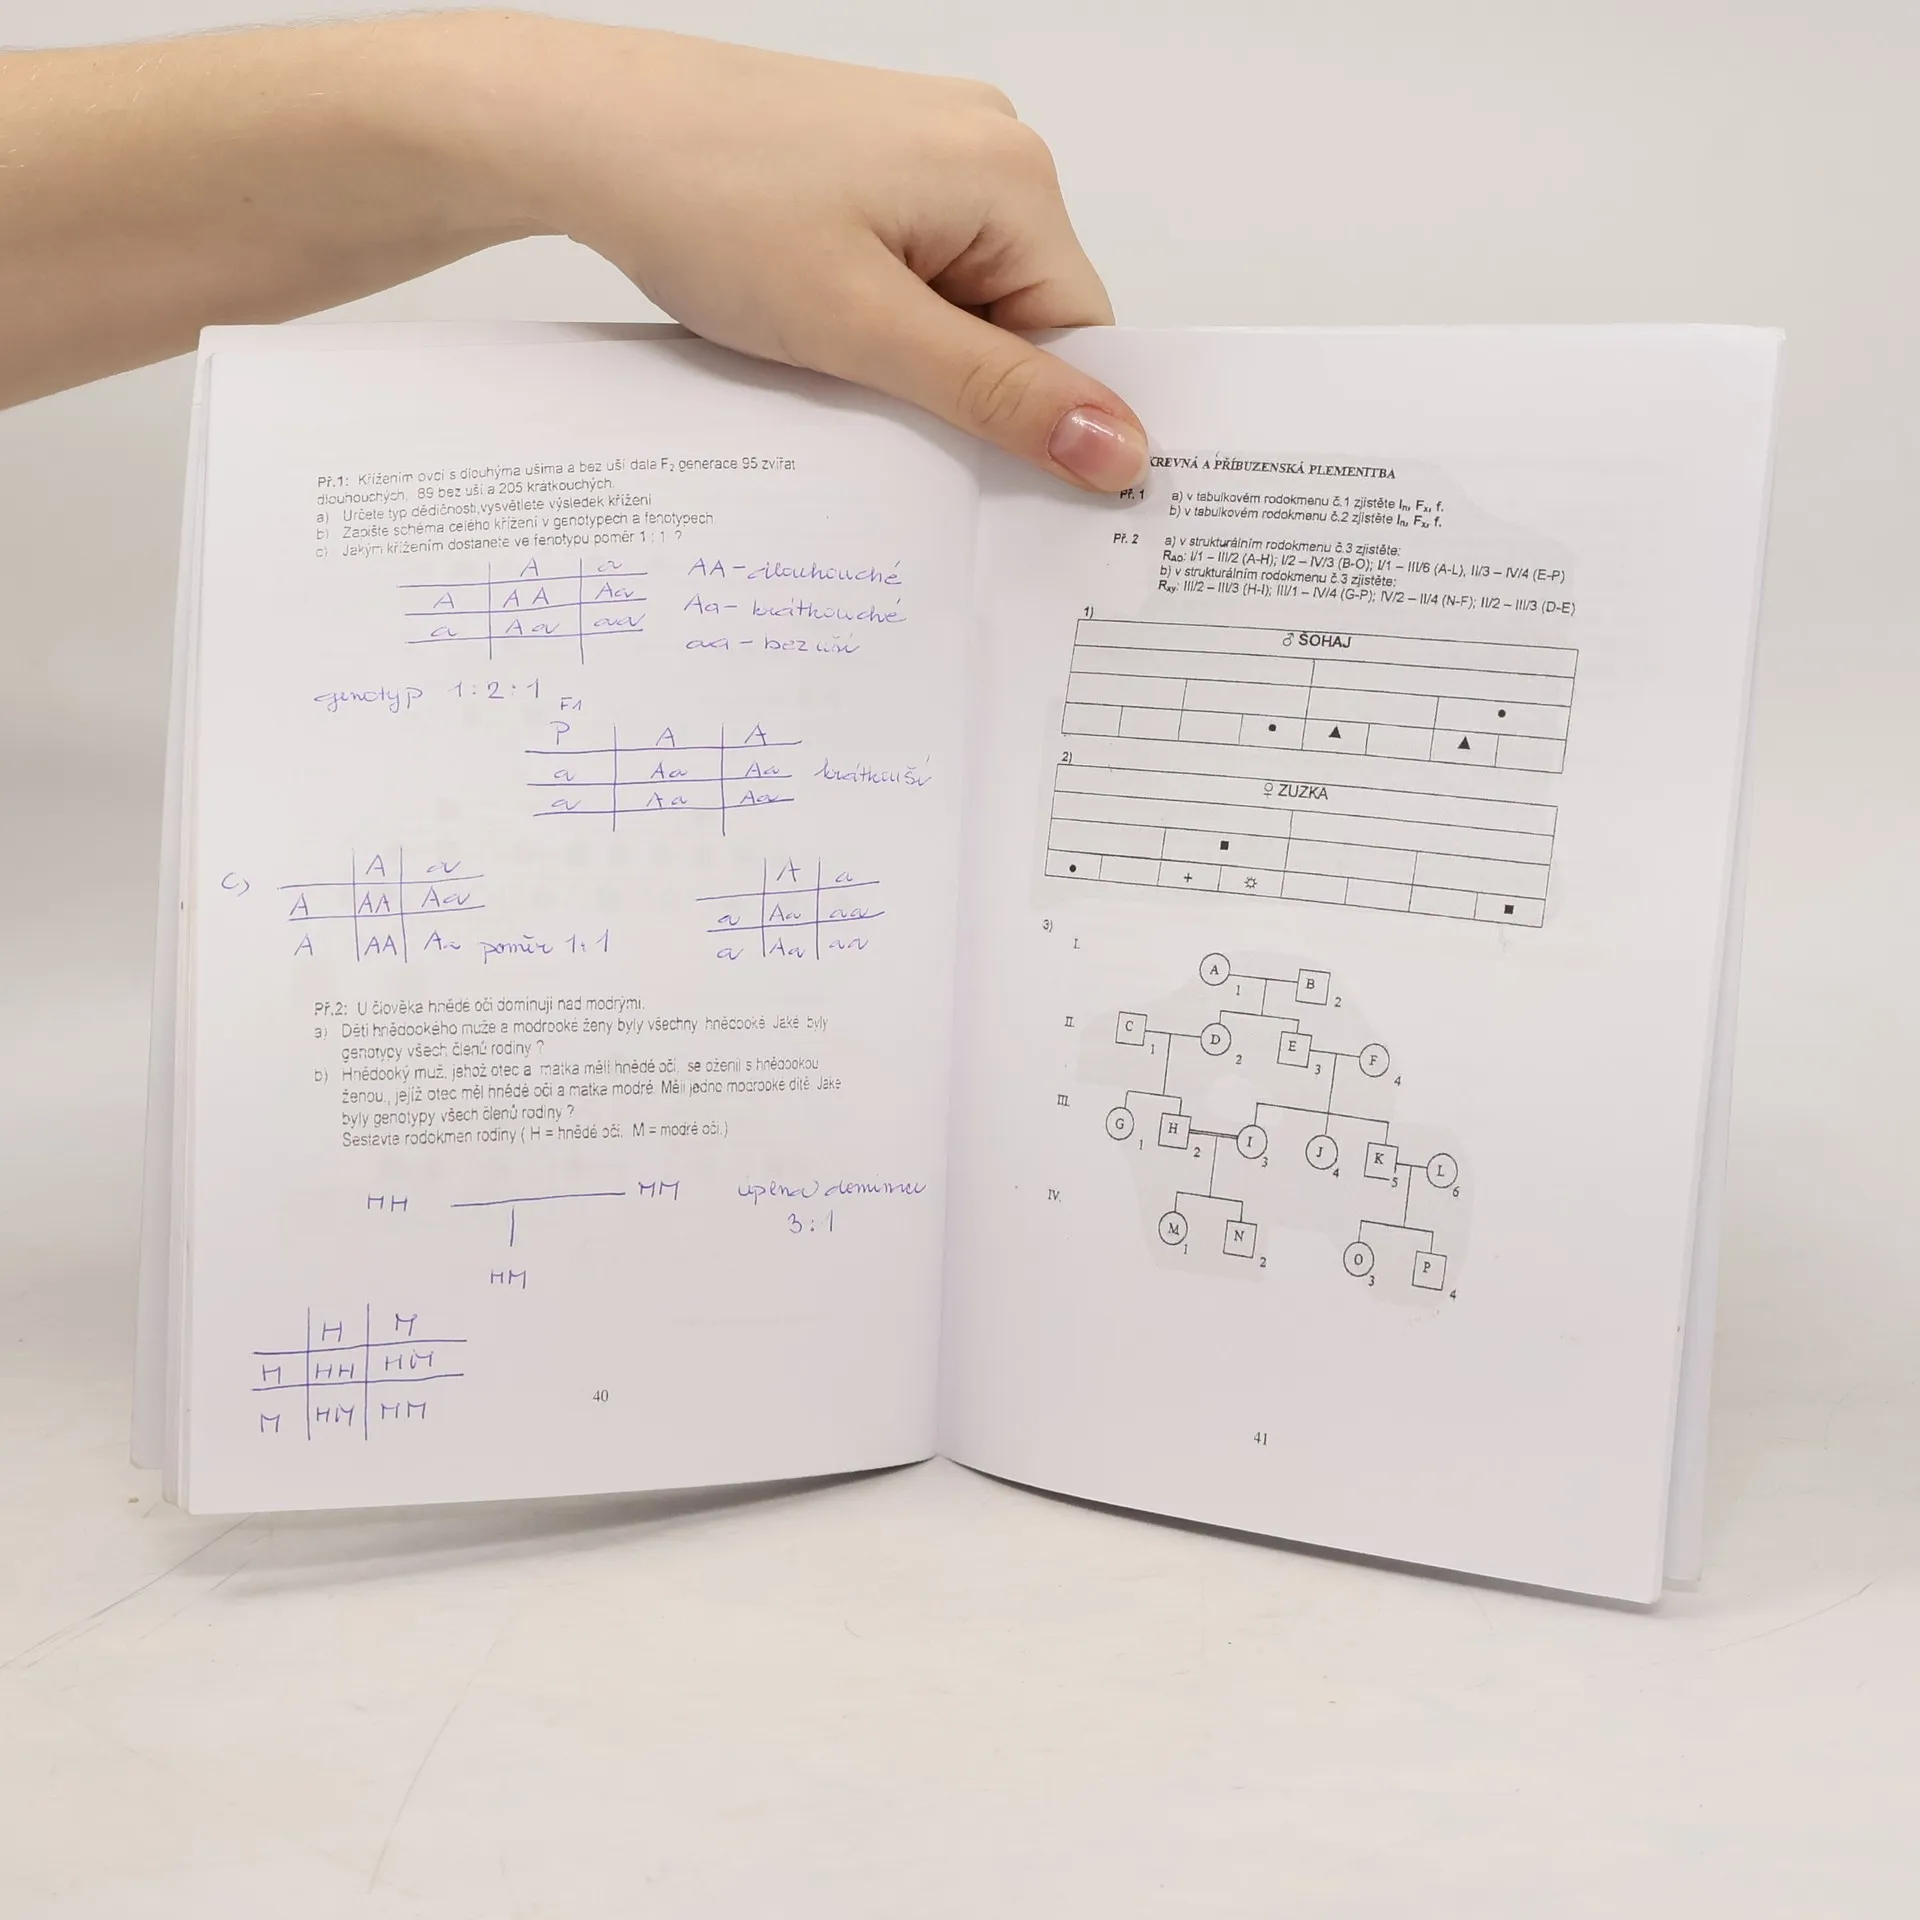 Př.1: Křížením ovcí s dlouhýma ušima a bez uší dala F₂ generace 95 zvířat
dlouhouchých, 89 bez uší a 205 krátkouchých.
a) Určete typ dědičnosti,vysvětlete výsledek křížení
b) Zapište schéma celého křížení v genotypech a fenotypech
c) Jakým křížením dostanete ve fenotypu poměr 1 : 1 ?
A a
A AA Aa
a Aa aa
AA - dlouhouché
Aa - krátkouché
aa - bez uší
genotyp 1:2:1
F1
P A A
a Aa Aa krátkouší
a Aa Aa
c)
A a
A AA Aa
A AA Aa poměr 1:1
A a
a Aa aa
a Aa aa
Př.2: U člověka hnědé oči dominují nad modrými.
a) Děti hnědookého muže a modrooké ženy byly všechny hnědooké. Jaké byly
genotypy všech členů rodiny ?
b) Hnědooký muž, jehož otec a matka měli hnědé oči, se oženil s hnědookou
ženou, jejíž otec měl hnědé oči a matka modré. Měli jedno modrooké dítě. Jaké
byly genotypy všech členů rodiny ?
Sestavte rodokmen rodiny ( H = hnědé oči, M = modré oči.)
HH MM úplná
3:1
HM
H M
H HH HM
M HM MM
40
KREVNÁ A PŘÍBUZENSKÁ PLEMENITBA
Př. 1 a) v tabulkovém rodokmenu č.1 zjistěte Iₙ, Fₓ, f.
b) v tabulkovém rodokmenu č.2 zjistěte Iₙ, Fₓ, f.
Př. 2 a) v strukturálním rodokmenu č.3 zjistěte:
R_AO: I/1 – III/2 (A-H); I/2 – IV/3 (B-O); I/1 – III/6 (A-L), II/3 – IV/4 (E-P)
b) v strukturálním rodokmenu č.3 zjistěte:
Rxy: III/2 – III/3 (H-I); III/1 – IV/4 (G-P); IV/2 – II/4 (N-F); II/2 – III/3 (D-E)
1)
♂ ŠOHAJ
2)
♀ ZUZKA
+
3)
I.
A 1 B 2
II.
C 1 D 2 E 3 F 4
III.
G 1 H 2 I 3 J 4 K 5 L 6
IV.
M 1 N 2 O 3 P 4
41